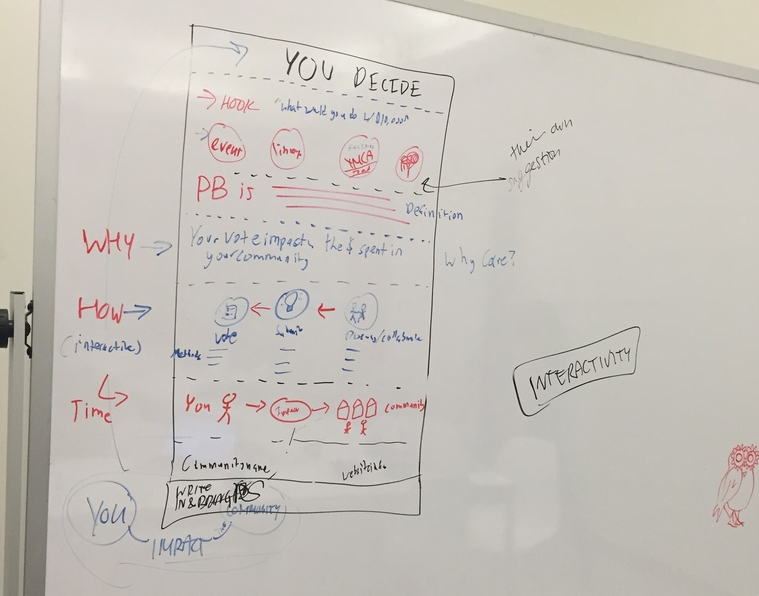 YOU DECIDE
→ HOOK "what would you do w/ $10,000"
event library YMCA
their own
suggestion
PB is
Definition
WHY → Your vote impacts the $ spent in
your community
Why care?
HOW →
(interactive)
vote ← submit ←
Methods
INTERACTIVITY
Time
You → Impact → community
Community name website info
WRITE
IN &
YOU IMPACT COMMUNITY